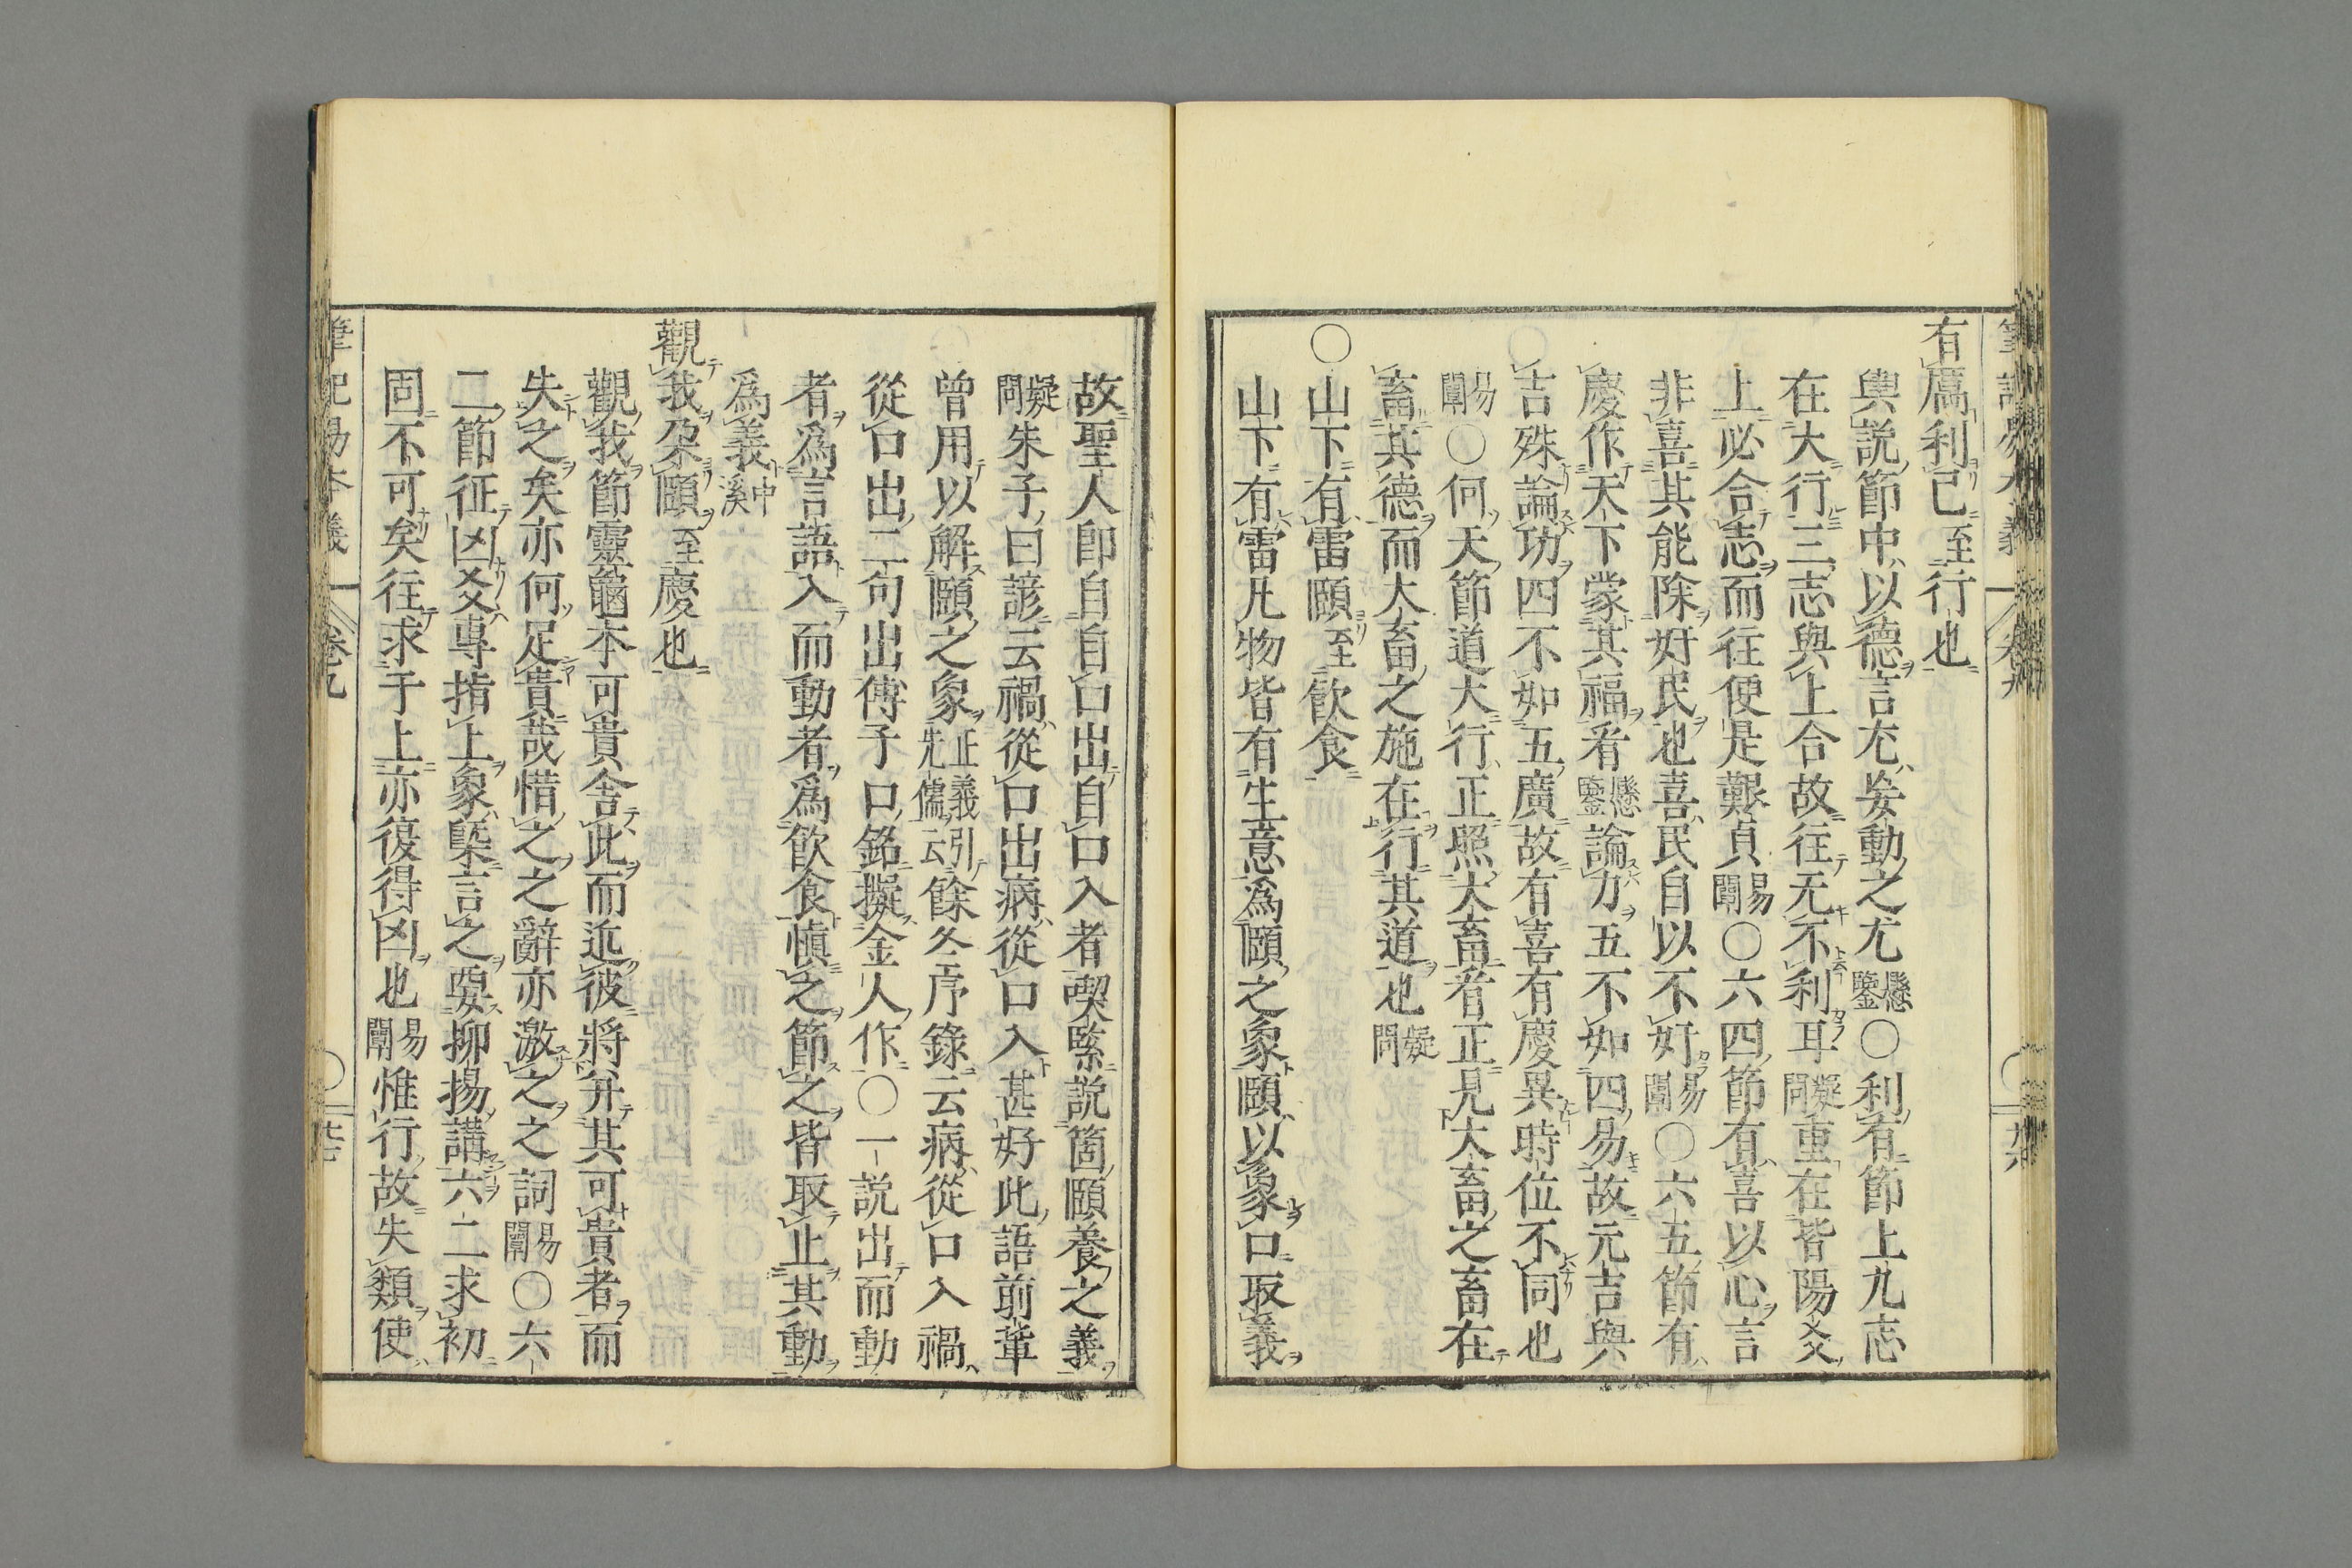 有厲利已至行也
輿説節中以德言尤妄動之尤懸鑒〇利有節上九志
在大行三志與上合故往无不利耳疑問重在皆陽爻
上必合志而往便是艱貞易闡〇六四節有喜以心言
非喜其能除好民也喜民自以不好易闡〇六五節有
慶作天下蒙其福看懸鑒論力五不如四易故元吉與
吉殊論功四不如五廣故有喜有慶異時位不同也
易闡〇何天節道大行正照大畜看正見大畜之畜在
畜其德而大畜之施在行其道也疑問
〇山下有雷頤至飲食
山下有雷凡物皆有生意爲頤之象頤以象口取義
故聖人即自自口出自口入者喫緊説箇頤養之義
疑問朱子曰諺云禍從口出病從口入甚好此語前輩
曾用以解頤之象正義引先儒云餘冬序錄云病從口入禍
從口出二句出傅子口銘擬金人作〇一説出而動
者爲言語入而動者爲飲食愼之節之皆取止其動
爲義中溪
觀我朶頤至慶也
觀我節靈龜本可貴舍此而近彼將并其可貴者而
失之矣亦何足貴哉惜之之辭亦激之之詞易闡〇六
二節征凶爻專指上象槩言之要抑揚講六二求初
固不可矣往求于上亦復得凶也易闡惟行故失類使
筆記易本義 卷九